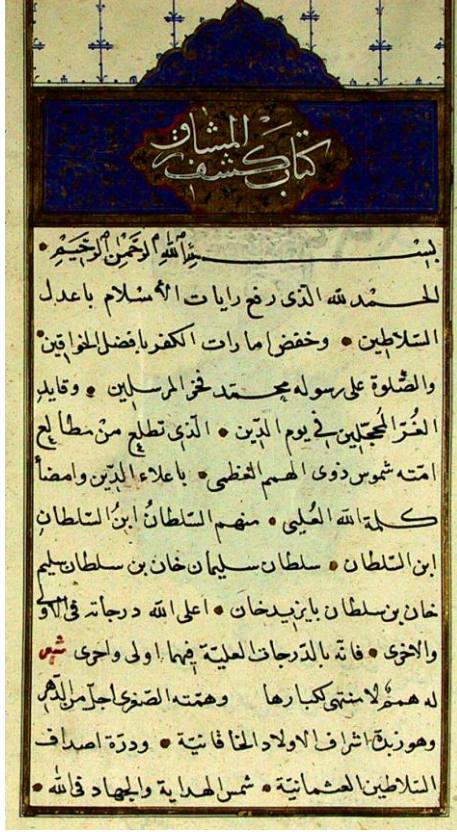 كتاب كشف المشاق
بسم الله الرحمن الرحيم
الحمد لله الذى رفع رايات الأسلام باعدل
السلاطين • وخفض امارات الكفر بافضل الخواقين
والصلوة على رسوله محمد فخر المرسلين • وقايد
الغر المحجلين فى يوم الدين • الذى تطلع من مطالع
امته شموس ذوى الهمم العظمى • باعلاء الدين وامضأ
كلمة الله العليى • منهم السلطان ابن السلطان
ابن السلطان • سلطان سليمان خان بن سلطان سليم
خان بن سلطان بايزيد خان • اعلى الله درجاته فى الاولى
والاخرى • فانه بالدرجات العلية فيهما اولى واحرى شعر
له همم لا منتهى لكبارها وهمته الصغرى اجل من الدهر
وهو زبدة اشراف الاولاد الخاقانية • ودرة اصداف
السلاطين العثمانية • شمس الهداية والجهاد فى الله •